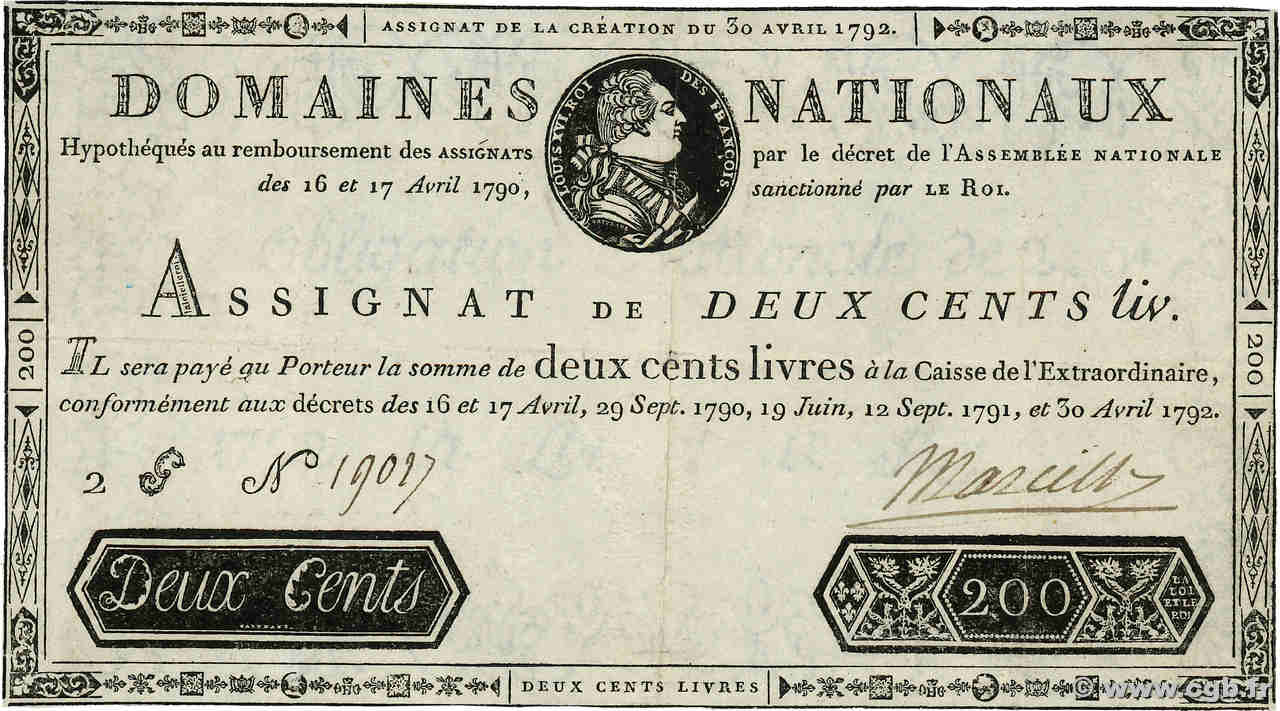 ASSIGNAT DE LA CRÉATION DU 30 AVRIL 1792.
DOMAINES NATIONAUX
LOUIS XVI ROI DES FRANÇOIS.
Hypothéqués au remboursement des ASSIGNATS par le décret de l'ASSEMBLÉE NATIONALE
des 16 et 17 Avril 1790, sanctionné par LE ROI.
ASSIGNAT DE DEUX CENTS liv.
IL sera payé au Porteur la somme de deux cents livres à la Caisse de l'Extraordinaire,
conformément aux décrets des 16 et 17 Avril, 29 Sept. 1790, 19 Juin, 12 Sept. 1791, et 30 Avril 1792.
200
200
2 S N° 19027
Marcilly
Deux Cents
200
LA LOI ET LE ROI
DEUX CENTS LIVRES
© www.cgb.fr